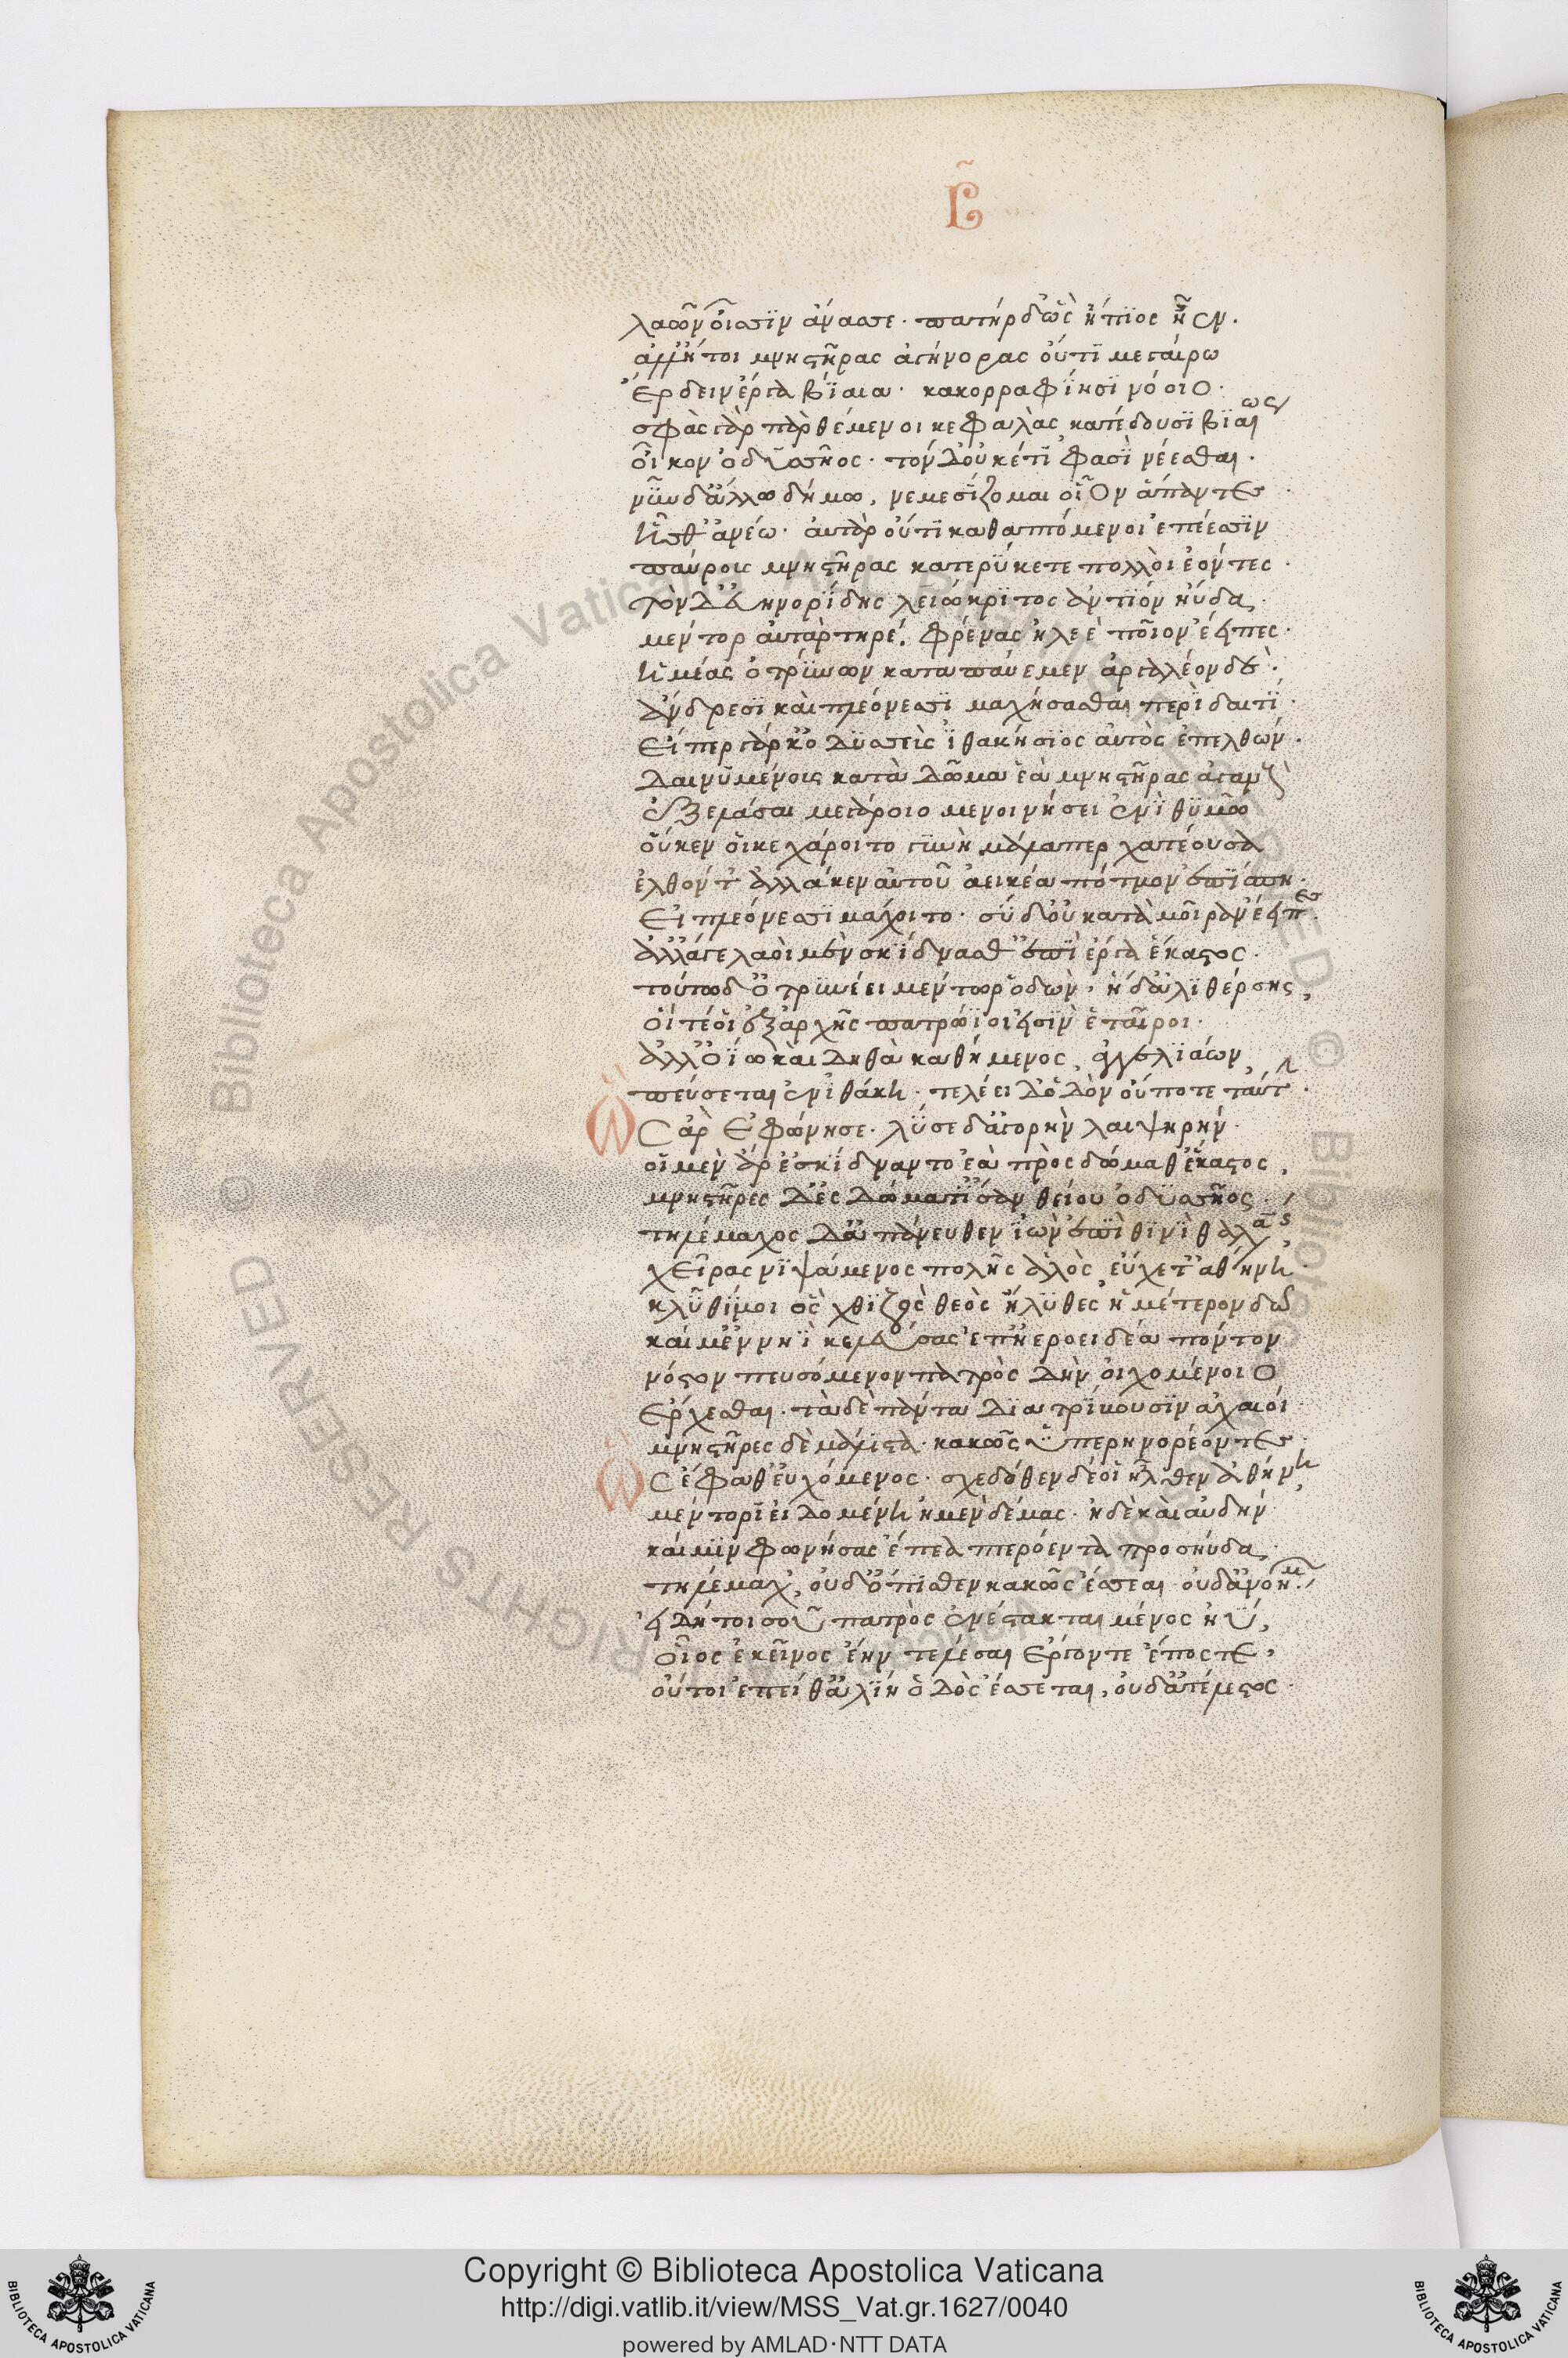 β̃
λαῶν οἷσιν ἄνασσε. πατὴρ δ' ὣς ἤπιος ἦεν.
ἀλλ' ἤτοι μνηστῆρας ἀγήνορας οὔτι μεγαίρω
Ἔρδειν ἔργα βίαια. κακορραφίησι νόοιο.
σφὰς γὰρ παρθέμενοι κεφαλὰς κατέδουσι βιαίως
οἶκον ὀδυσσῆος. τὸν δ' οὐκέτι φασὶ νέεσθαι.
νῦν δ' ἄλλω δήμω, νεμεσίζομαι οἷον ἅπαντες
ἧσθ' ἄνεω. ἀτὰρ οὔτι καθαπτόμενοι ἐπέεσσιν
παύροις μνηστῆρας κατερύκετε πολλοὶ ἐόντες.
τὸν δ' εὐηνορίδης λειώκριτος ἀντίον ηὔδα.
μέντορ ἀταρτηρέ. φρένας ἠλεὲ ποῖον ἔειπες.
ἡμέας ὀτρύνων καταπαυέμεν ἀργαλέον δὲ.
ἀνδρεσὶ καὶ πλεόνεσσι μαχήσασθαι περὶ δαιτί.
Εἴπερ γάρ κ' ὀδυσσεὺς ἰθακήσιος αὐτὸς ἐπελθών.
δαινυμένους κατὰ δῶμα ἑὰ μνηστῆρας ἀγαυοὺς
ἐξελάσαι μεγάροιο μενοινήσει ἐνὶ θυμῶ
οὔ κεν οἷ κεχάροιτο γυνὴ μάλα περ χατέουσα
ἐλθόντ' ἀλλά κεν αὐτοῦ ἀεικέα πότμον ἐπίσπη.
Εἰ πλεόνεσσι μάχοιτο. σὺ δ' οὐ κατὰ μοῖραν ἔειπες.
ἀλλ' ἄγε λαοὶ μὲν σκίδνασθ' ἐπὶ ἔργα ἕκαστος.
τούτω δ' ὀτρυνέει μέντωρ ὁδὸν, ἠδ' ἁλιθέρσης,
οἵτε οἱ ἐξ ἀρχῆς πατρώϊοι εἰσὶν ἑταῖροι.
ἀλλ' ὀΐω καὶ δηθὰ καθήμενος, ἀγγελιάων
πεύσεται εἰν ἰθάκη. τελέει δ' ὁδὸν οὔποτε ταύτην.
Ὣς ἄρ ἐφώνησε. λῦσε δ' ἀγορὴν λαιψηρήν.
οἱ μὲν ἄρ ἐσκίδναντο ἑὰ πρὸς δώμαθ' ἕκαστος,
μνηστῆρες δ' ἐς δώματ' ἴσαν θείου ὀδυσσῆος.
τηλέμαχος δ' ἀπάνευθεν ἰὼν ἐπὶ θινὶ θαλάσσης,
χεῖρας νιψάμενος πολιῆς ἁλὸς, εὔχετ' ἀθήνη.
κλῦθί μοι ὃς χθιζὸς θεὸς ἤλυθες ἡμέτερον δῶ
καί μ' ἐν νηῒ κέλευσας ἐπ' ἠεροειδέα πόντον
νόστον πευσόμενον πατρὸς δὴν οἰχομένοιο
Ἔρχεσθαι. τὰ δὲ πάντα διατρίβουσιν ἀχαιοί.
μνηστῆρες δὲ μάλιστα. κακῶς ὑπερηνορέοντες.
Ὣς ἔφατ' εὐχόμενος. σχεδόθεν δέ οἱ ἦλθεν ἀθήνη,
μέντορι εἰδομένη ἠμὲν δέμας. ἠδὲ καὶ αὐδήν.
καί μιν φωνήσας ἔπεα πτερόεντα προσηύδα.
τηλέμαχ', οὐδ' ὄπιθεν κακὸς ἔσσεαι οὐδ' ἀνοήμων,
εἰ δή τοι σοῦ πατρὸς ἐνέστακται μένος ἠΰ,
οἷος ἐκεῖνος ἔην τελέσαι ἔργον τε ἔπος τε,
οὔτοι ἔπειθ' ἁλίη ὁδὸς ἔσσεται, οὐδ' ἀτέλεστος.
Copyright © Biblioteca Apostolica Vaticana
http://digi.vatlib.it/view/MSS_Vat.gr.1627/0040
powered by AMLAD·NTT DATA